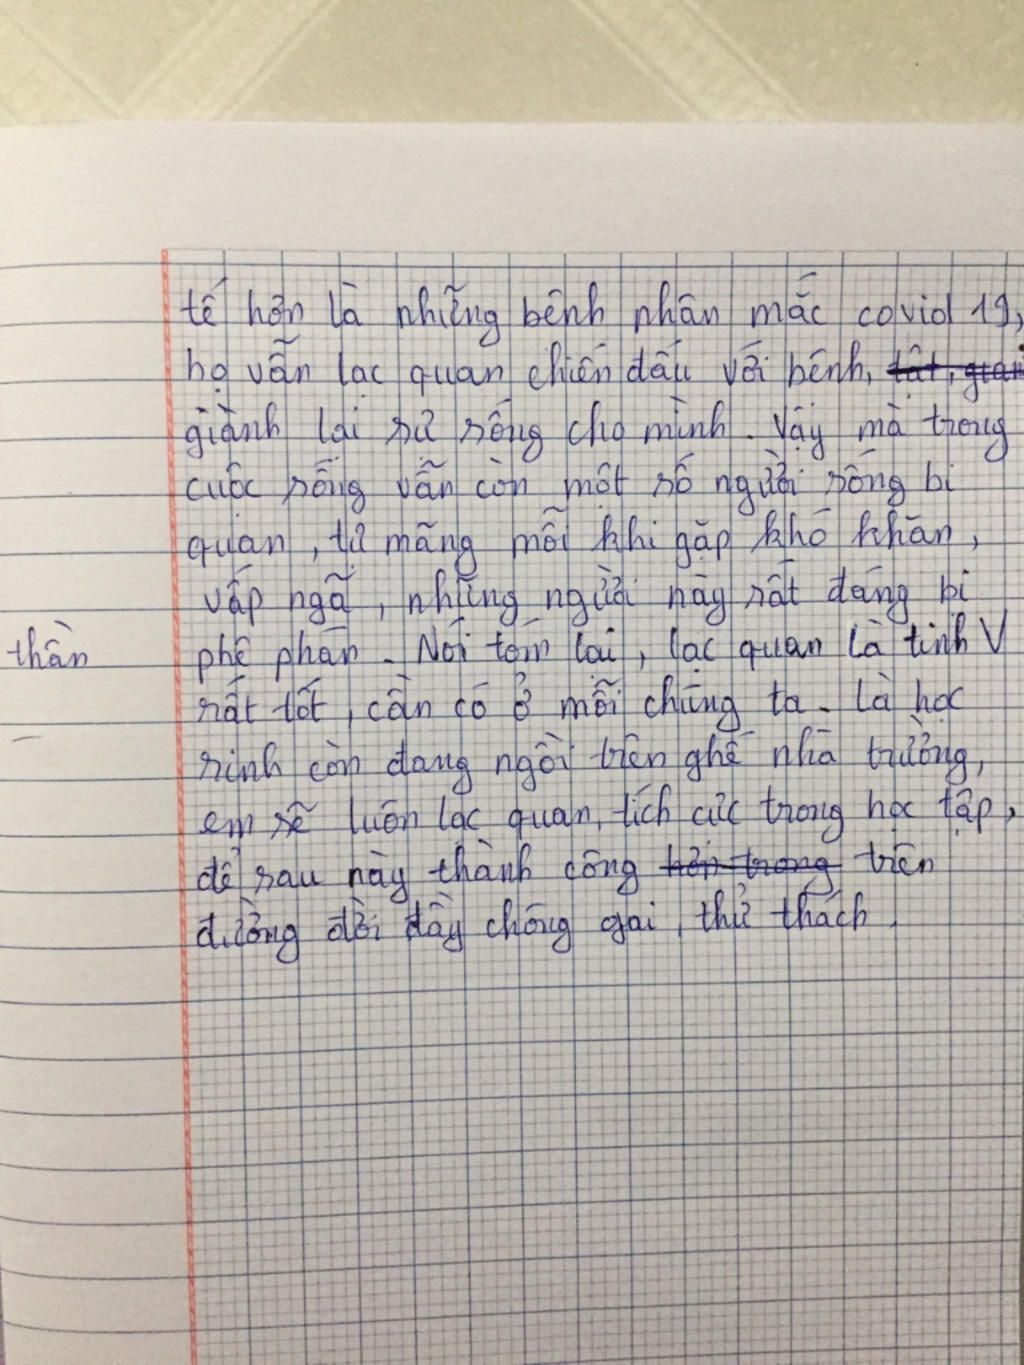 tế hơn là những bệnh nhân mắc covid 19,
họ vẫn lạc quan chiến đấu với bệnh, tật, gian
giành lại sự sống cho mình. Vậy mà trong
cuộc sống vẫn còn một số người sống bi
quan, tự mãng mỗi khi gặp khó khăn,
vấp ngã, những người này rất đáng bị
phê phán. Nói tóm lại, lạc quan là tinh V
thần
rất tốt, cần có ở mỗi chúng ta. Là học
sinh còn đang ngồi trên ghế nhà trường,
em sẽ luôn lạc quan, tích cực trong học tập,
để sau này thành công hơn trong trên
đường đời đầy chông gai, thử thách.